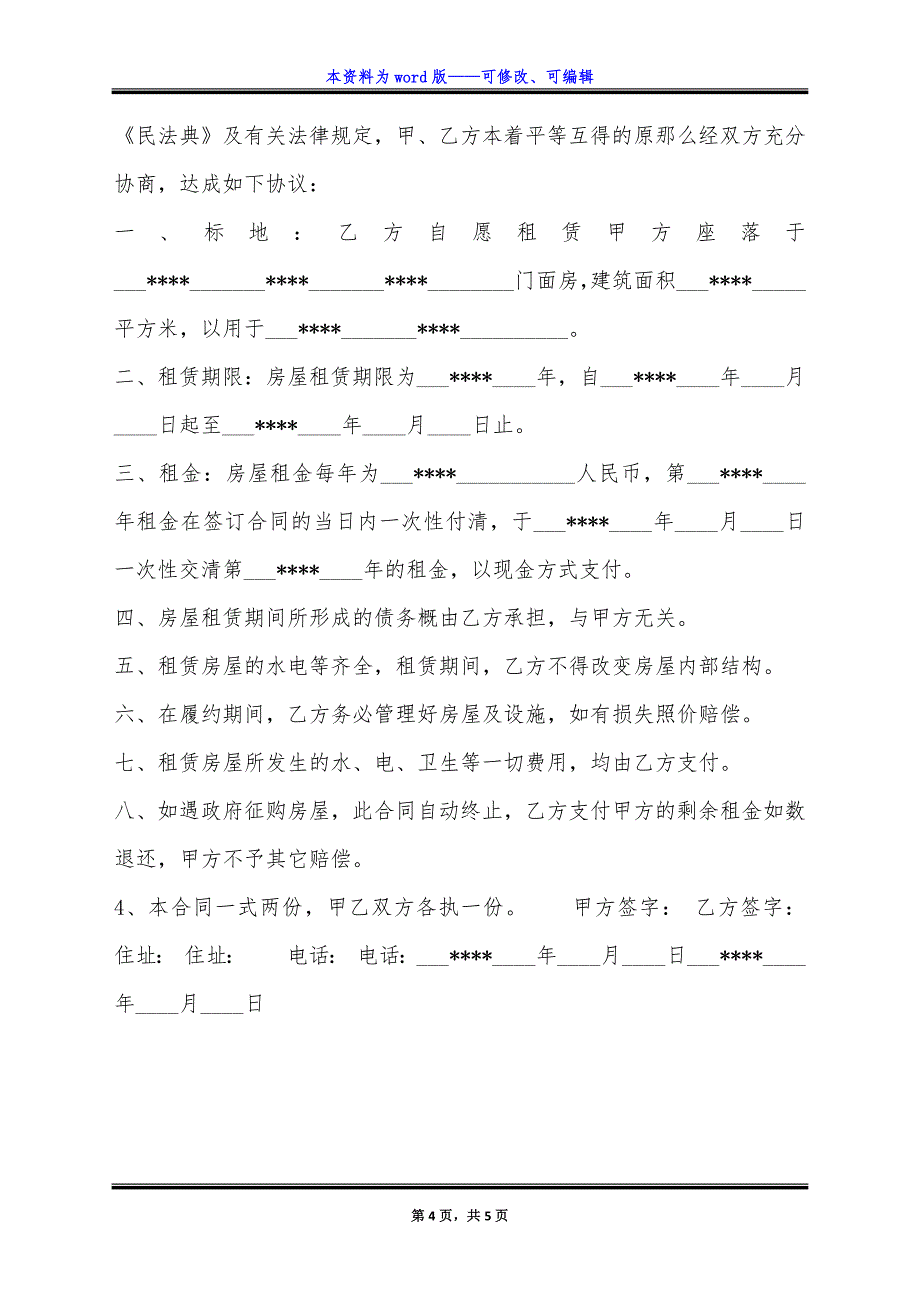 本资料为 word 版——可修改、可编辑
《民法典》及有关法律规定，甲、乙方本着平等互得的原那么经双方充分
协商，达成如下协议：
一、标地：乙方自愿租赁甲方座落于
___****_______****_______****________门面房，建筑面积___****_____
平方米，以用于___****_______****__________。
二、租赁期限：房屋租赁期限为___****____年，自___****____年____月
____日起至___****____年____月____日止。
三、租金：房屋租金每年为___****___________人民币，第___****____
年租金在签订合同的当日内一次性付清，于___****____年____月____日
一次性交清第___****____年的租金，以现金方式支付。
四、房屋租赁期间所形成的债务概由乙方承担，与甲方无关。
五、租赁房屋的水电等齐全，租赁期间，乙方不得改变房屋内部结构。
六、在履约期间，乙方务必管理好房屋及设施，如有损失照价赔偿。
七、租赁房屋所发生的水、电、卫生等一切费用，均由乙方支付。
八、如遇政府征购房屋，此合同自动终止，乙方支付甲方的剩余租金如数
退还，甲方不予其它赔偿。
4、本合同一式两份，甲乙双方各执一份。 甲方签字： 乙方签字：
住址： 住址： 电话： 电话：___****____年____月____日___****____
年____月____日
第 4 页，共 5 页